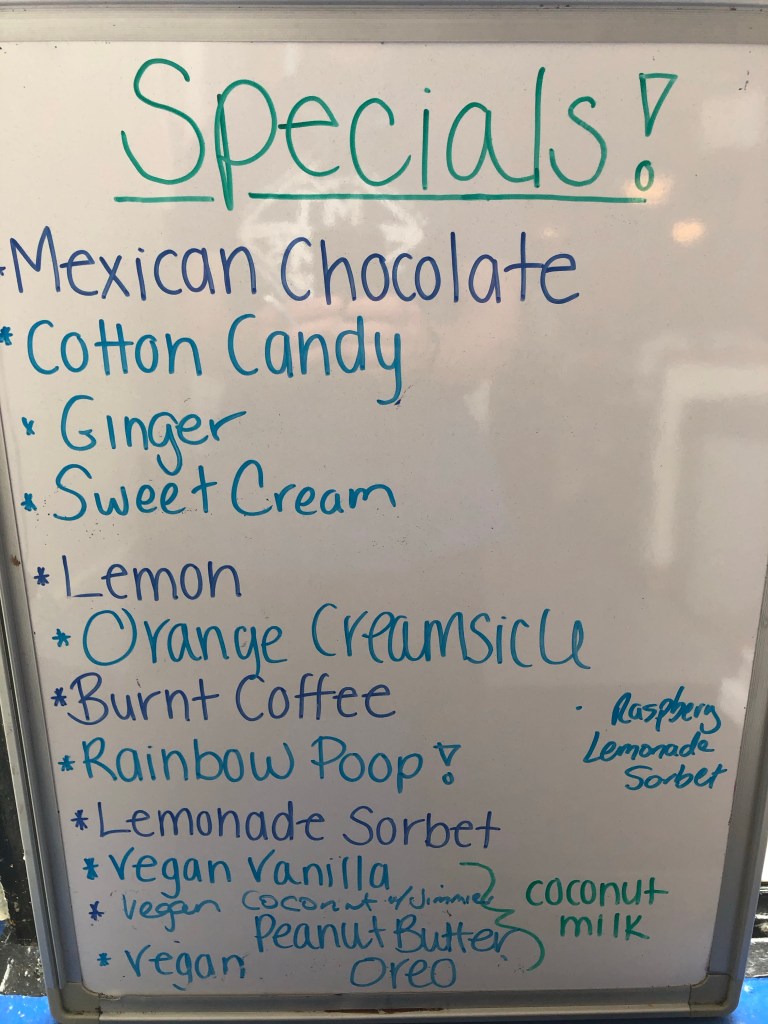 Specials!
• Mexican Chocolate
* Cotton Candy
* Ginger
* Sweet Cream
* Lemon
* Orange Creamsicle
* Burnt Coffee
* Rainbow Poop!
• Raspbery
Lemonade
Sorbet
* Lemonade Sorbet
* Vegan Vanilla
* Vegan Coconut w/Jimmies
coconut
milk
* Vegan Peanut Butter
Oreo